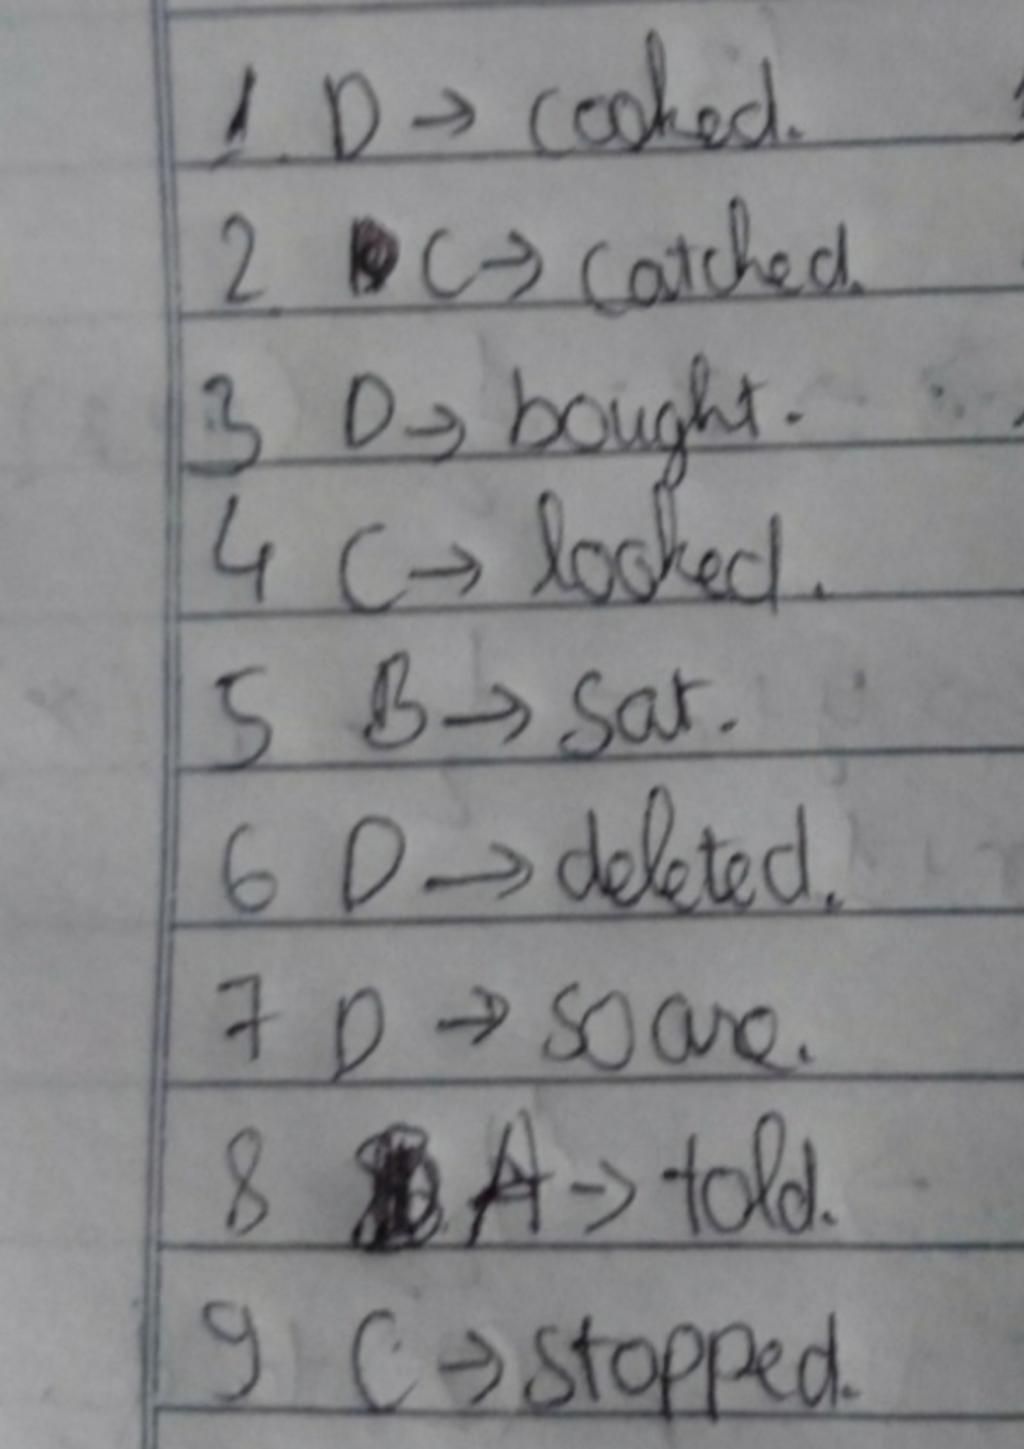 1. D → cooked.
2. C → catched.
3 D → bought.
4 C → looked.
5 B → sat.
6 D → deleted.
7 D → so are.
8 A → told.
9 C → stopped.